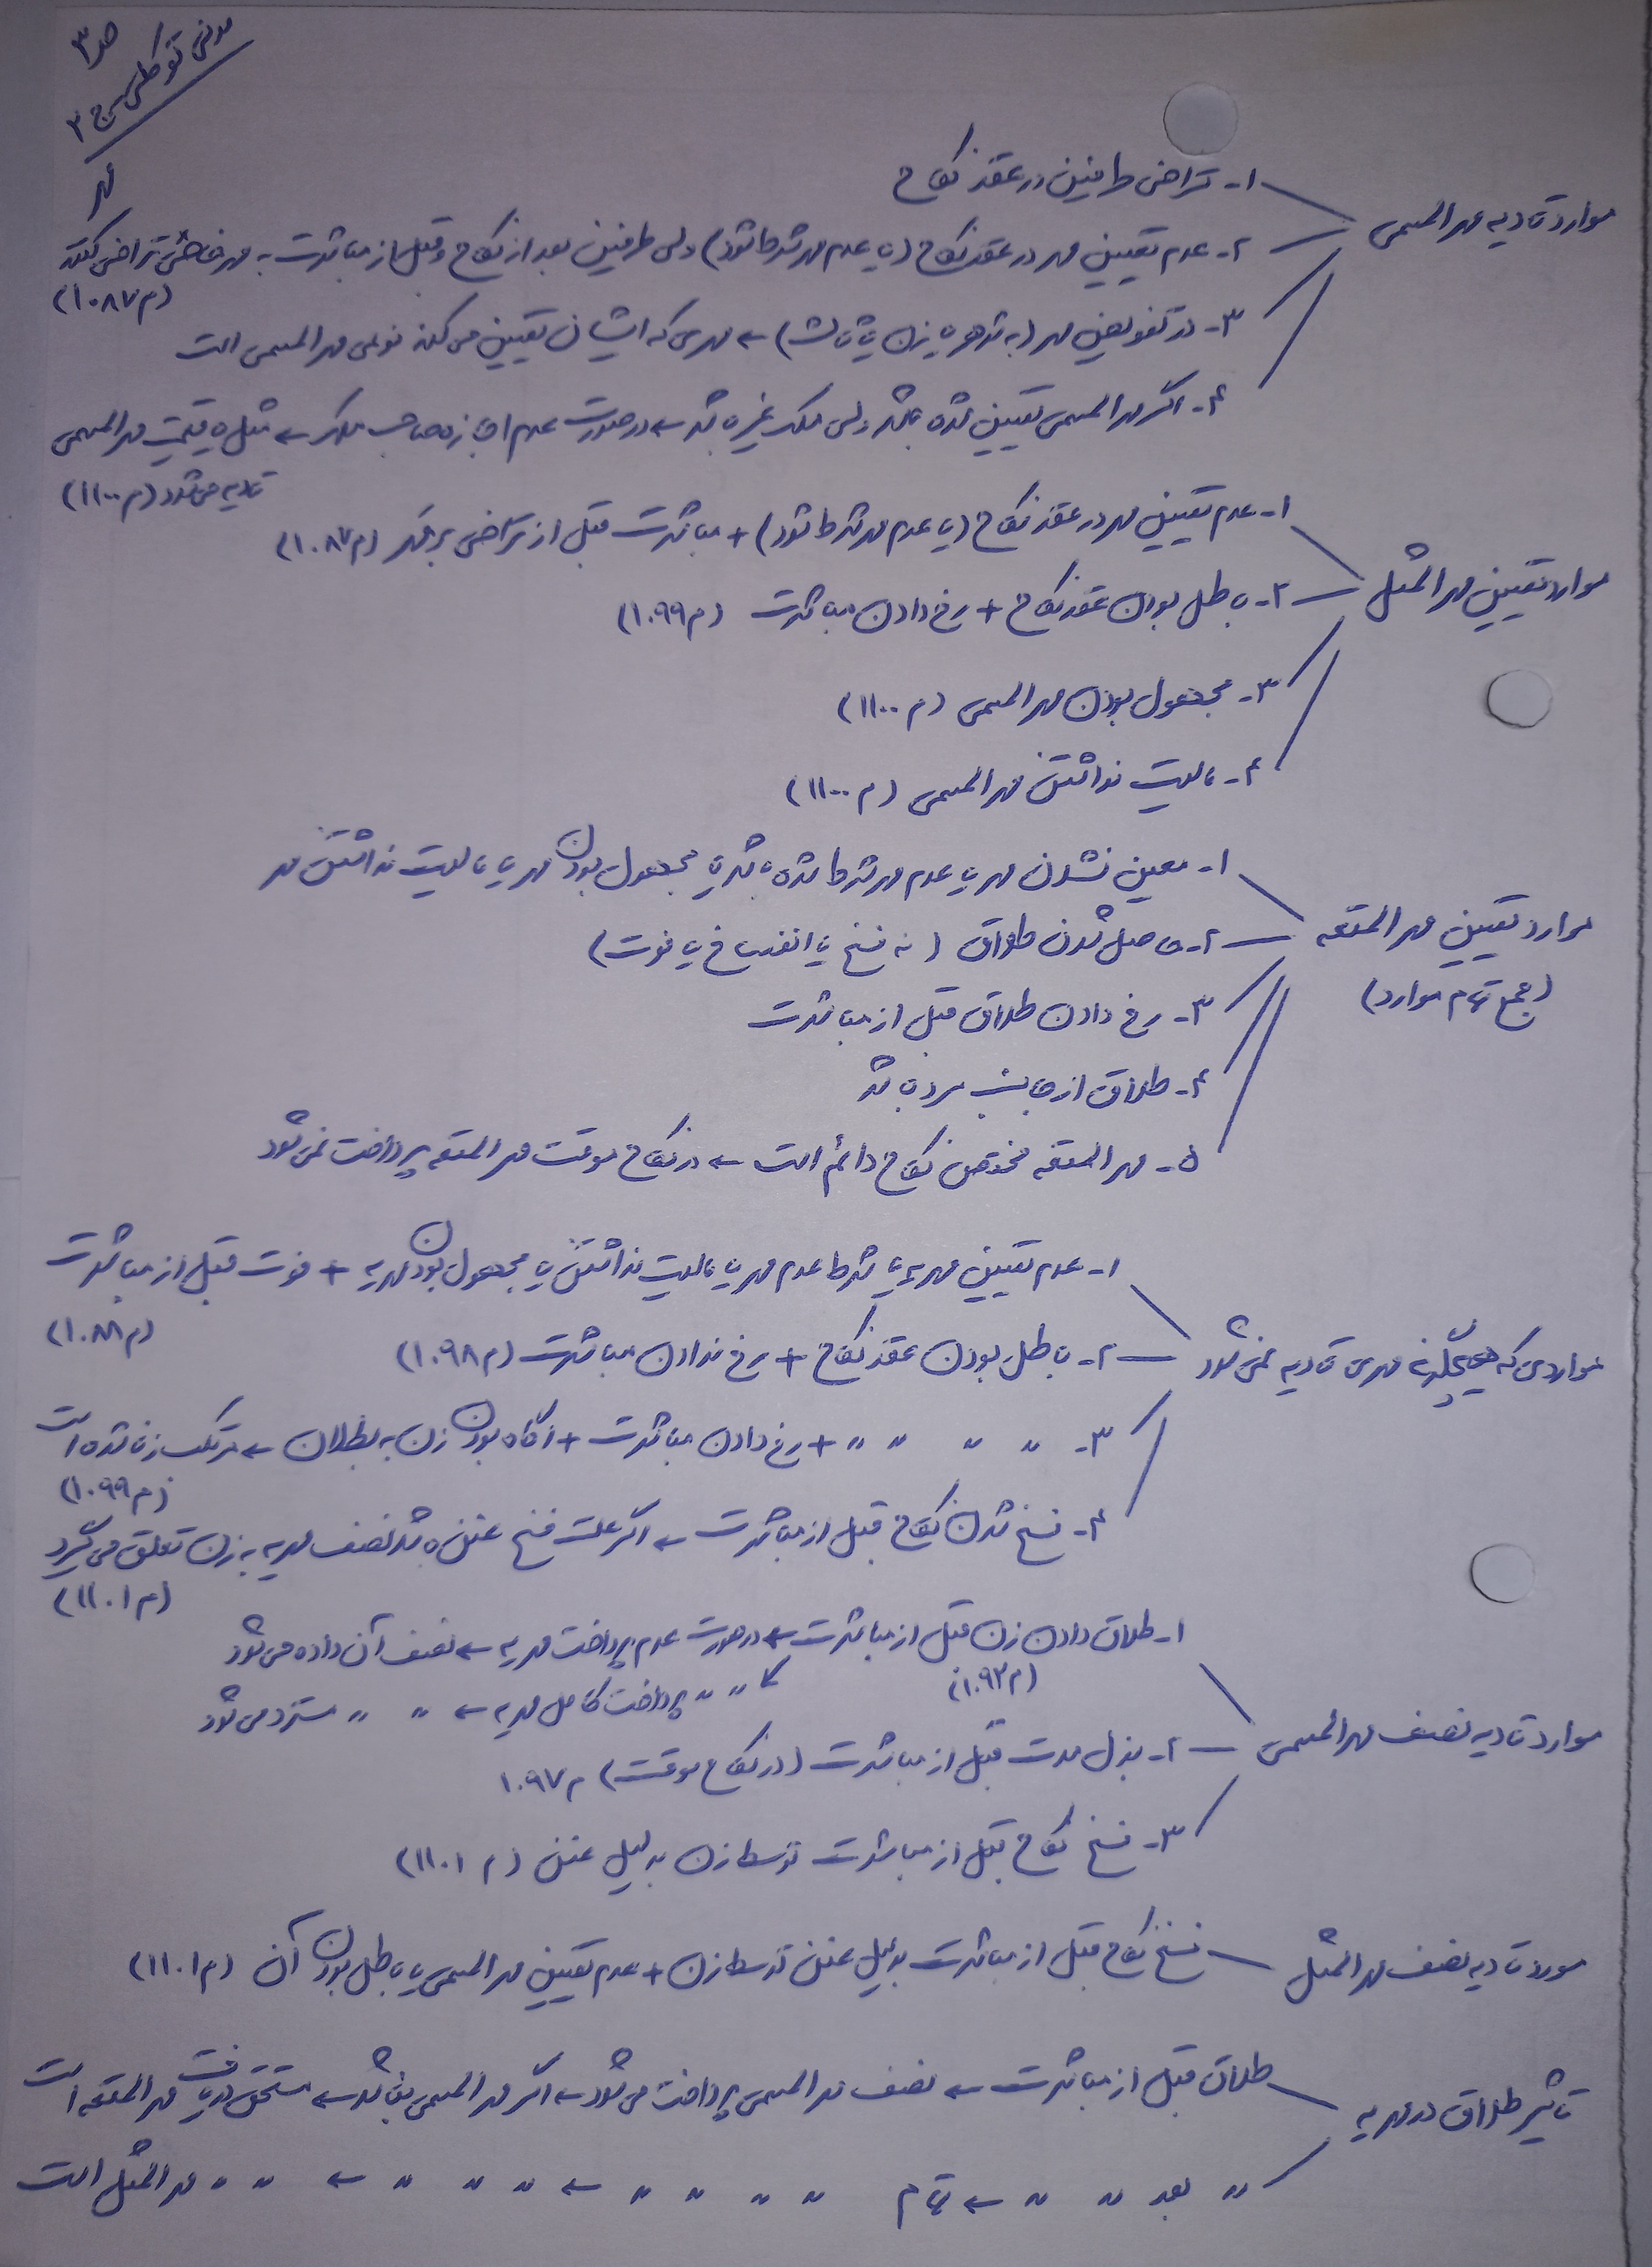 ص ۳
مدنی توکلی ج ۲
مهر
موارد تادیه مهرالمسمی
۱- تراضی طرفین در عقد نکاح
۲- عدم تعیین مهر در عقد نکاح (یا عدم مهر شرط شود) ولی طرفین بعد از نکاح و قبل از مباشرت به مهر خاصی تراضی کنند
(م ۱۰۸۷)
۳- در تفویض مهر (به شوهر یا زن یا ثالث) ← مهری که ایشان تعیین می کند نوعی مهرالمسمی است
۴- اگر مهرالمسمی تعیین شده باشد ولی ملک غیر باشد ← در صورت عدم اجازه صاحب ملک ← مثل یا قیمت مهرالمسمی
تادیه می شود (م ۱۱۰۰)
موارد تعیین مهرالمثل
۱- عدم تعیین مهر در عقد نکاح (یا عدم مهر شرط شود) + مباشرت قبل از تراضی بر مهر (م ۱۰۸۷)
۲- باطل بودن عقد نکاح + رخ دادن مباشرت (م ۱۰۹۹)
۳- مجهول بودن مهرالمسمی (م ۱۱۰۰)
۴- مالیت نداشتن مهرالمسمی (م ۱۱۰۰)
موارد تعیین مهرالمتعه
(جمع تمام موارد)
۱- معین نشدن مهر یا عدم مهر شرط شده باشد یا مجهول بودن مهر یا مالیت نداشتن مهر
۲- حاصل شدن طلاق (نه فسخ یا انفساخ یا فوت)
۳- رخ دادن طلاق قبل از مباشرت
۴- طلاق از جانب مرد باشد
۵- مهرالمتعه مختص نکاح دائم است ← در نکاح موقت مهرالمتعه پرداخت نمی شود
مواردی که هیچگونه مهری تادیه نمی شود
۱- عدم تعیین مهریه یا شرط عدم مهر یا مالیت نداشتن یا مجهول بودن مهریه + فوت قبل از مباشرت
(م ۱۰۸۸)
۲- باطل بودن عقد نکاح + رخ ندادن مباشرت (م ۱۰۹۸)
۳- " " " " + رخ دادن مباشرت + آگاه بودن زن به بطلان ← مرتکب زنا شده است
(م ۱۰۹۹)
۴- فسخ شدن نکاح قبل از مباشرت ← اگر علت فسخ عنن باشد نصف مهریه به زن تعلق می گیرد
(م ۱۱۰۱)
موارد تادیه نصف مهرالمسمی
۱- طلاق دادن زن قبل از مباشرت ← در صورت عدم پرداخت مهریه ← نصف آن داده می شود
(م ۱۰۹۲)
↙ " " پرداخت کامل مهریه ← " " مسترد می شود
۲- بذل مدت قبل از مباشرت (در نکاح موقت) م ۱۰۹۷
۳- فسخ نکاح قبل از مباشرت توسط زن به دلیل عنن (م ۱۱۰۱)
مورد تادیه نصف مهرالمثل
فسخ نکاح قبل از مباشرت بدلیل عنن توسط زن + عدم تعیین مهرالمسمی یا باطل بودن آن (م ۱۱۰۱)
تاثیر طلاق در مهریه
طلاق قبل از مباشرت ← نصف مهرالمسمی پرداخت می شود ← اگر مهرالمسمی نباشد ← مستحق دریافت مهرالمتعه است
" بعد " " ← تمام " " " " ← " " " ← " " مهرالمثل است